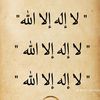 " لا إله إلا الله "
" لا إله إلا الله "
" لا إله إلا الله "